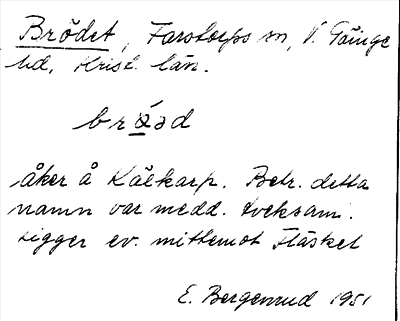 Brödet, Farstorps sn, V. Göinge
hd, Krist. län.
bröəd
åker å Kälkarp. Betr. detta
namn var medd. tveksam.
Ligger ev. mittemot Fläsket
E. Bergenrud 1951